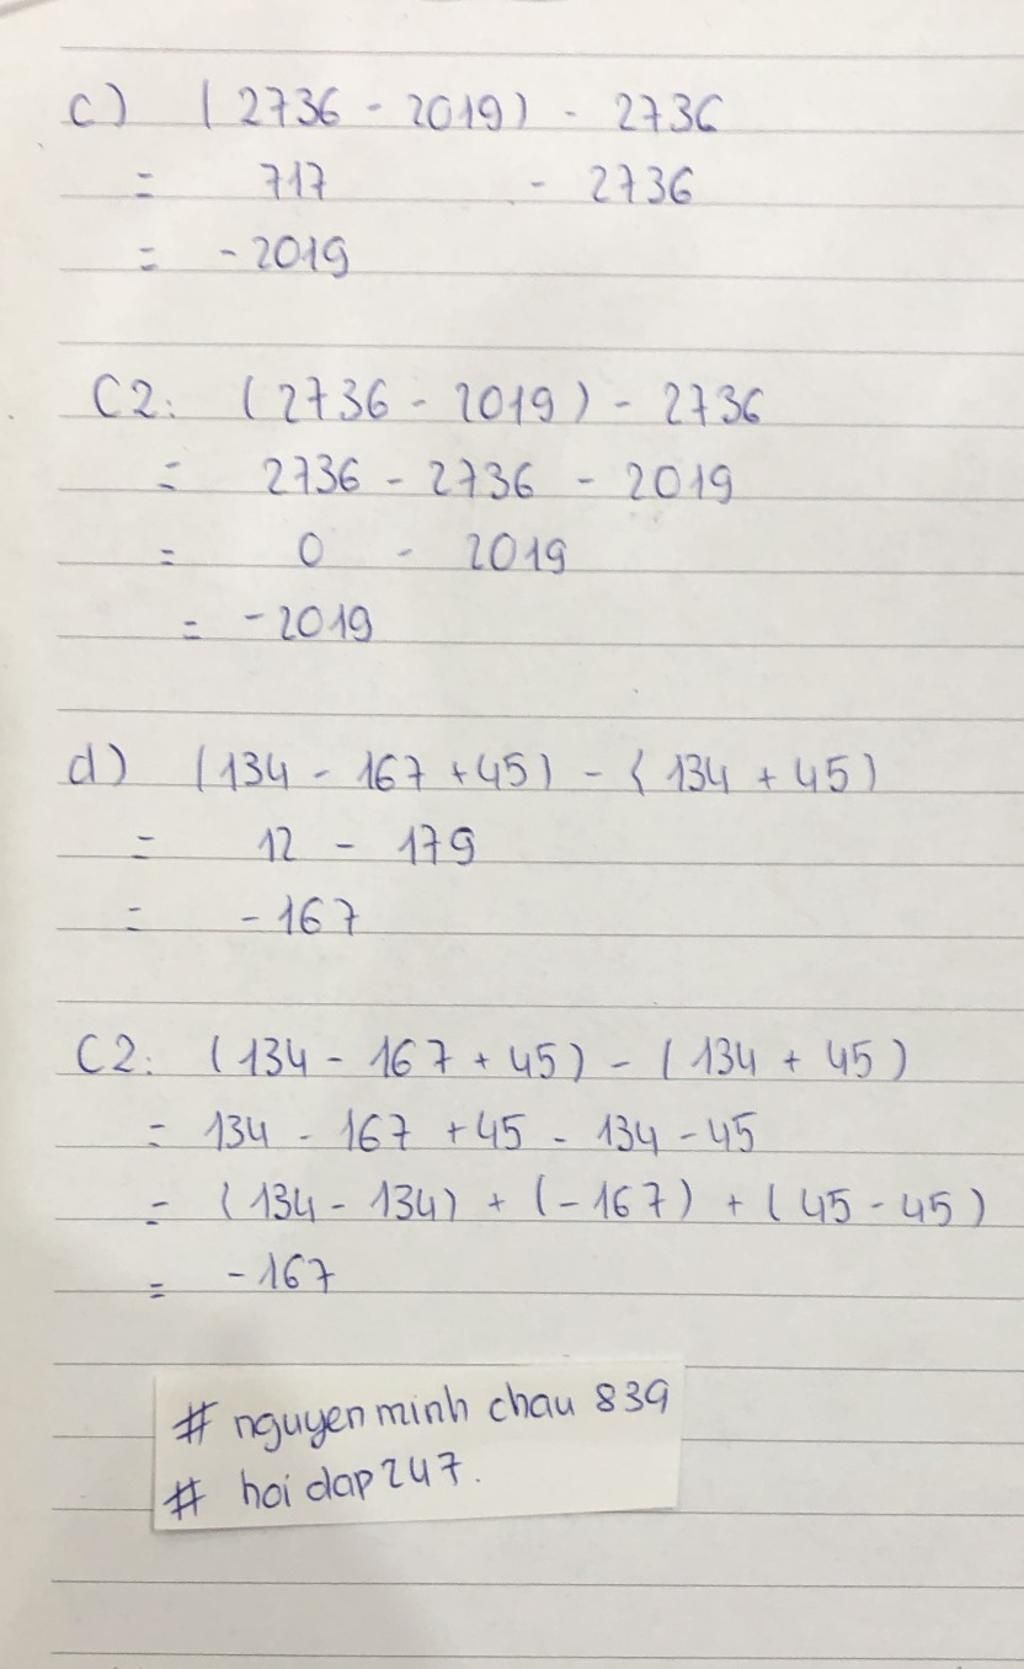 c) (2736 - 2019) - 2736
= 717 - 2736
= -2019
C2: (2736 - 2019) - 2736
= 2736 - 2736 - 2019
= 0 - 2019
= -2019
d) (134 - 167 + 45) - (134 + 45)
= 12 - 179
= -167
C2: (134 - 167 + 45) - (134 + 45)
= 134 - 167 + 45 - 134 - 45
= (134 - 134) + (-167) + (45 - 45)
= -167
# nguyen minh chau 839
# hoi dap 247.